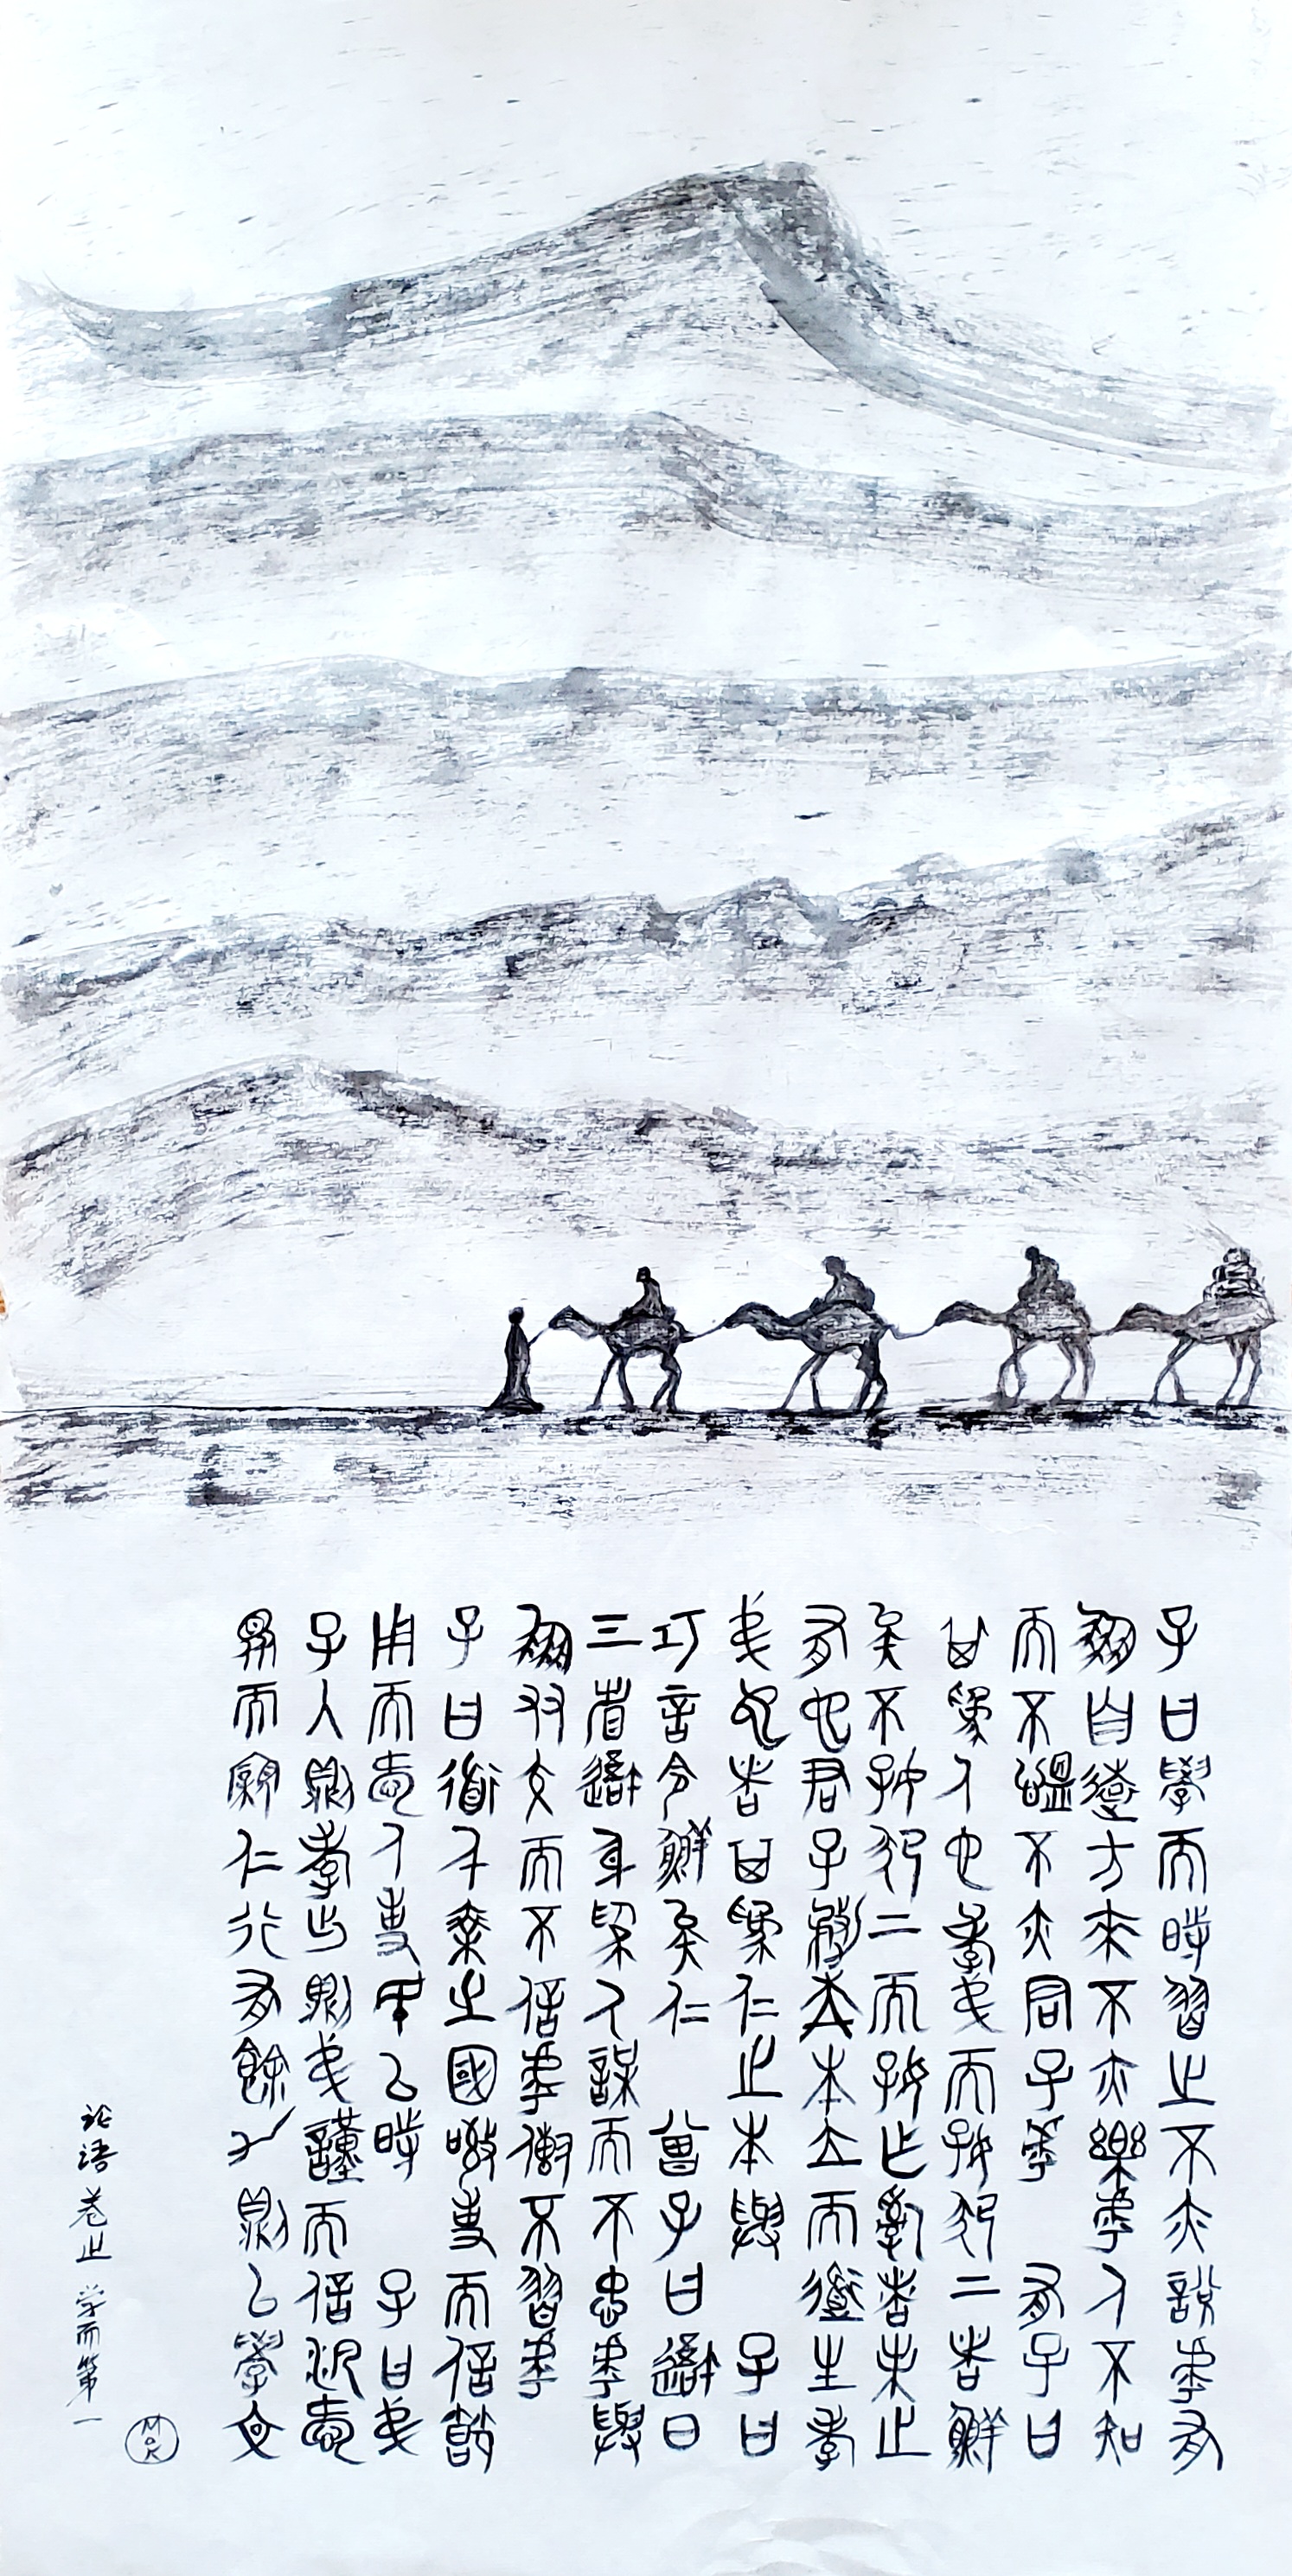 子曰學而時習之不亦說乎有
朋自遠方來不亦樂乎人不知
而不慍不亦君子乎 有子曰
其為人也孝弟而好犯上者鮮
矣不好犯上而好作亂者未之
有也君子務本本立而道生孝
弟也者其為仁之本與 子曰
巧言令鮮矣仁 曾子曰吾日
三省吾身為人謀而不忠乎與
朋友交而不信乎傳不習乎
子曰道千乘之國敬事而信節
用而愛人使民以時 子曰弟
子入則孝出則弟謹而信汎愛
眾而親仁行有餘力則以學文
论语 卷上 学而第一
MOK